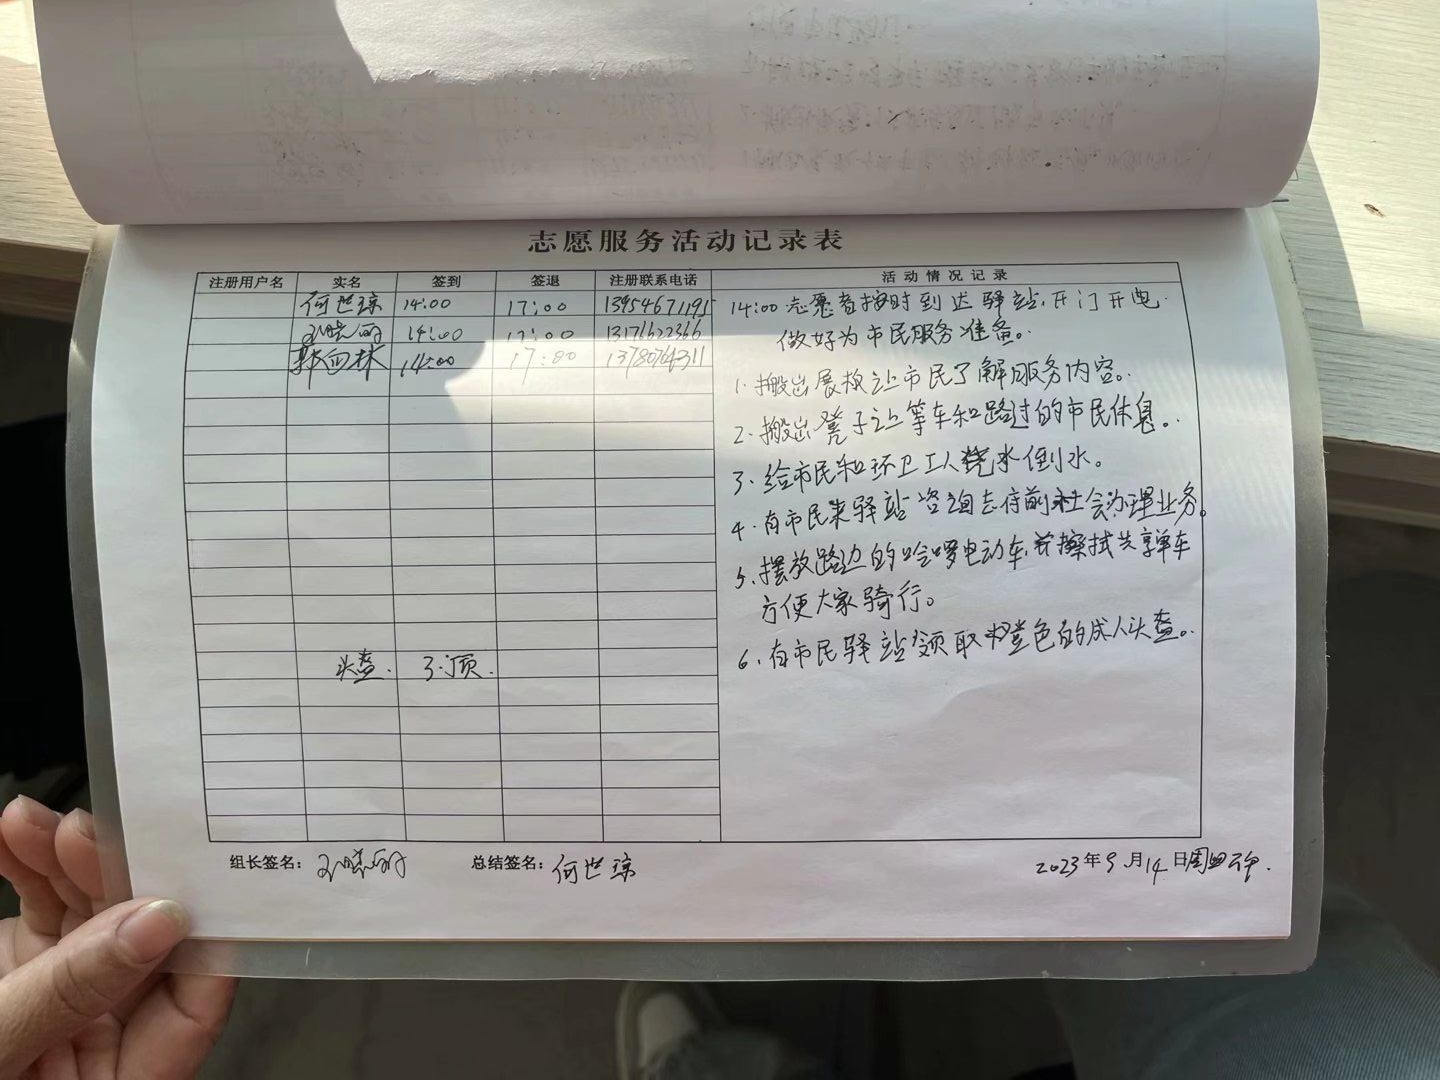 志愿服务活动记录表
注册用户名 实名 签到 签退 注册联系电话 活动情况记录
何世琼 14:00 17:00 13954671195
14:00 17:00 13171622366
14:00 17:00
14:00 志愿者按时到达驿站,开门开电
做好为市民服务准备。
1. 搬出展板让市民了解服务内容。
2. 搬出凳子让等车和路过的市民休息。
3. 给市民和环卫工人烧水倒水。
4. 有市民来驿站咨询去何前社会办理业务。
5. 摆放路边的哈啰电动车,并擦拭共享单车
方便大家骑行。
6. 有市民驿站领取橙色的成人头盔。
头盔. 3顶.
组长签名: 总结签名: 何世琼
2023年9月14日周四